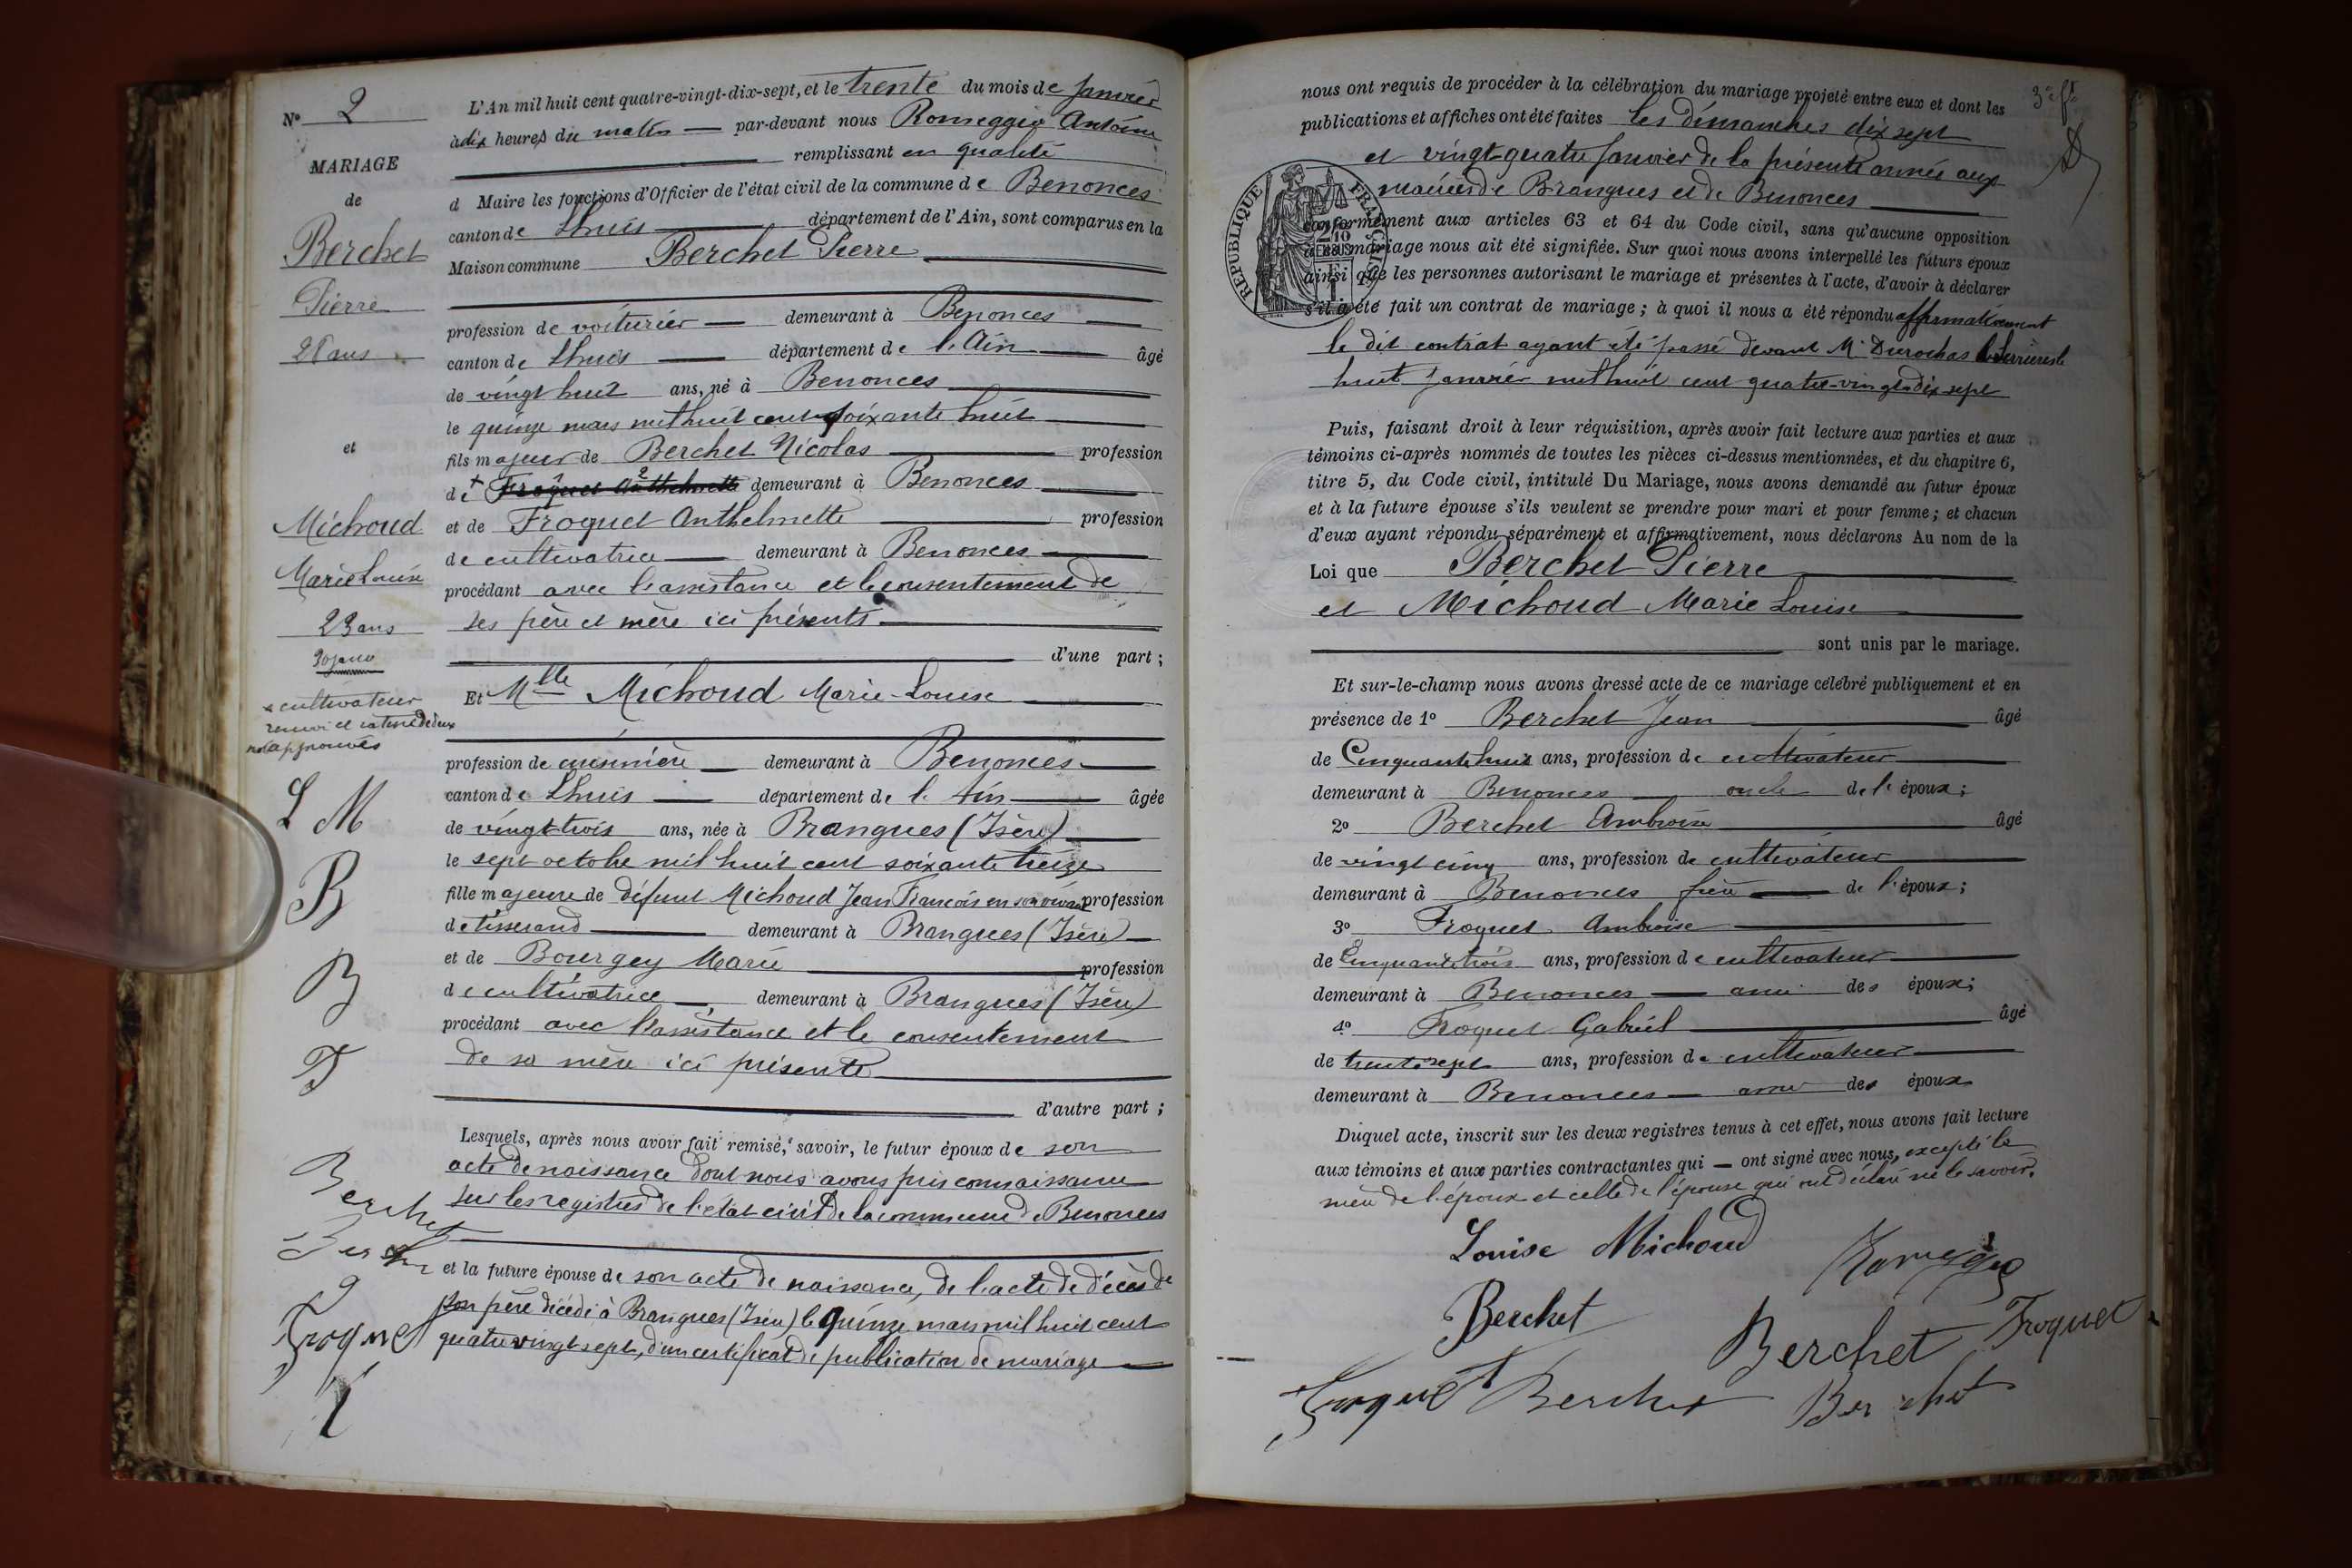 N° 2
MARIAGE
de
Berchet
Pierre
28 ans
et
Michoud
Marie Louise
23 ans
30 janv
x cultivateur
renvoi et rature de deux
mots approuvés
L M
B
B
F
Berchet
Froquet
L'An mil huit cent quatre-vingt-dix-sept, et le trente du mois de Janvier
à dix heures du matin par-devant nous Romeggio Antoine
remplissant en qualité
d Maire les fonctions d'Officier de l'état civil de la commune de Benonces
canton de Lhuis département de l'Ain, sont comparus en la
Maison commune Berchet Pierre
profession de voiturier demeurant à Benonces
canton de Lhuis département de l'Ain âgé
de vingt huit ans, né à Benonces
le quinze mars mil huit cent soixante huit
fils majeur de Berchet Nicolas profession
de + Froquet Anthelmette demeurant à Benonces
et de Froquet Anthelmette profession
de cultivatrice demeurant à Benonces
procédant avec l'assistance et le consentement de
ses père et mère ici présents
d'une part ;
Et Mlle Michoud Marie-Louise
profession de cuisinière demeurant à Benonces
canton de Lhuis département de l'Ain âgée
de vingt trois ans, née à Brangues (Isère)
le sept octobre mil huit cent soixante treize
fille majeure de défunt Michoud Jean François en son vivant profession
de tisserand demeurant à Brangues (Isère)
et de Bourgey Marie profession
de cultivatrice demeurant à Brangues (Isère)
procédant avec l'assistance et le consentement
de sa mère ici présente
d'autre part ;
Lesquels, après nous avoir fait remise, savoir, le futur époux de son
acte de naissance dont nous avons pris connaissance
sur les registres de l'état civil de la commune de Benonces
et la future épouse de son acte de naissance, de l'acte de décès de
son père décédé à Brangues (Isère) le quinze mars mil huit cent
quatre vingt sept, d'un certificat de publication de mariage
3e ft
nous ont requis de procéder à la célébration du mariage projeté entre eux et dont les
publications et affiches ont été faites les dimanches dix sept
et vingt-quatre Janvier de la présente année aux
mairies de Brangues et de Benonces
RÉPUBLIQUE FRANÇAISE
conformément aux articles 63 et 64 du Code civil, sans qu'aucune opposition
à ce mariage nous ait été signifiée. Sur quoi nous avons interpellé les futurs époux
ainsi que les personnes autorisant le mariage et présentes à l'acte, d'avoir à déclarer
s'il a été fait un contrat de mariage ; à quoi il nous a été répondu affirmativement
le dit contrat ayant été passé devant Me Durochas le
huit Janvier mil huit cent quatre-vingt-dix sept
Puis, faisant droit à leur réquisition, après avoir fait lecture aux parties et aux
témoins ci-après nommés de toutes les pièces ci-dessus mentionnées, et du chapitre 6,
titre 5, du Code civil, intitulé Du Mariage, nous avons demandé au futur époux
et à la future épouse s'ils veulent se prendre pour mari et pour femme ; et chacun
d'eux ayant répondu séparément et affirmativement, nous déclarons Au nom de la
Loi que Berchet Pierre
et Michoud Marie Louise
sont unis par le mariage.
Et sur-le-champ nous avons dressé acte de ce mariage célébré publiquement et en
présence de 1° Berchet Jean âgé
de Cinquante huit ans, profession de cultivateur
demeurant à Benonces oncle de l'époux ;
2° Berchet Ambroise âgé
de vingt cinq ans, profession de cultivateur
demeurant à Benonces frère de l'époux ;
3° Froquet Ambroise
de Cinquante trois ans, profession de cultivateur
demeurant à Benonces ami des époux ;
4° Froquet Gabriel âgé
de trente sept ans, profession de cultivateur
demeurant à Benonces ami des époux
Duquel acte, inscrit sur les deux registres tenus à cet effet, nous avons fait lecture
aux témoins et aux parties contractantes qui ont signé avec nous, excepté la
mère de l'époux et celle de l'épouse qui ont déclaré ne le savoir.
Louise Michoud
Romeggio
Berchet
Berchet Froquet
Froquet Berchet Berchet